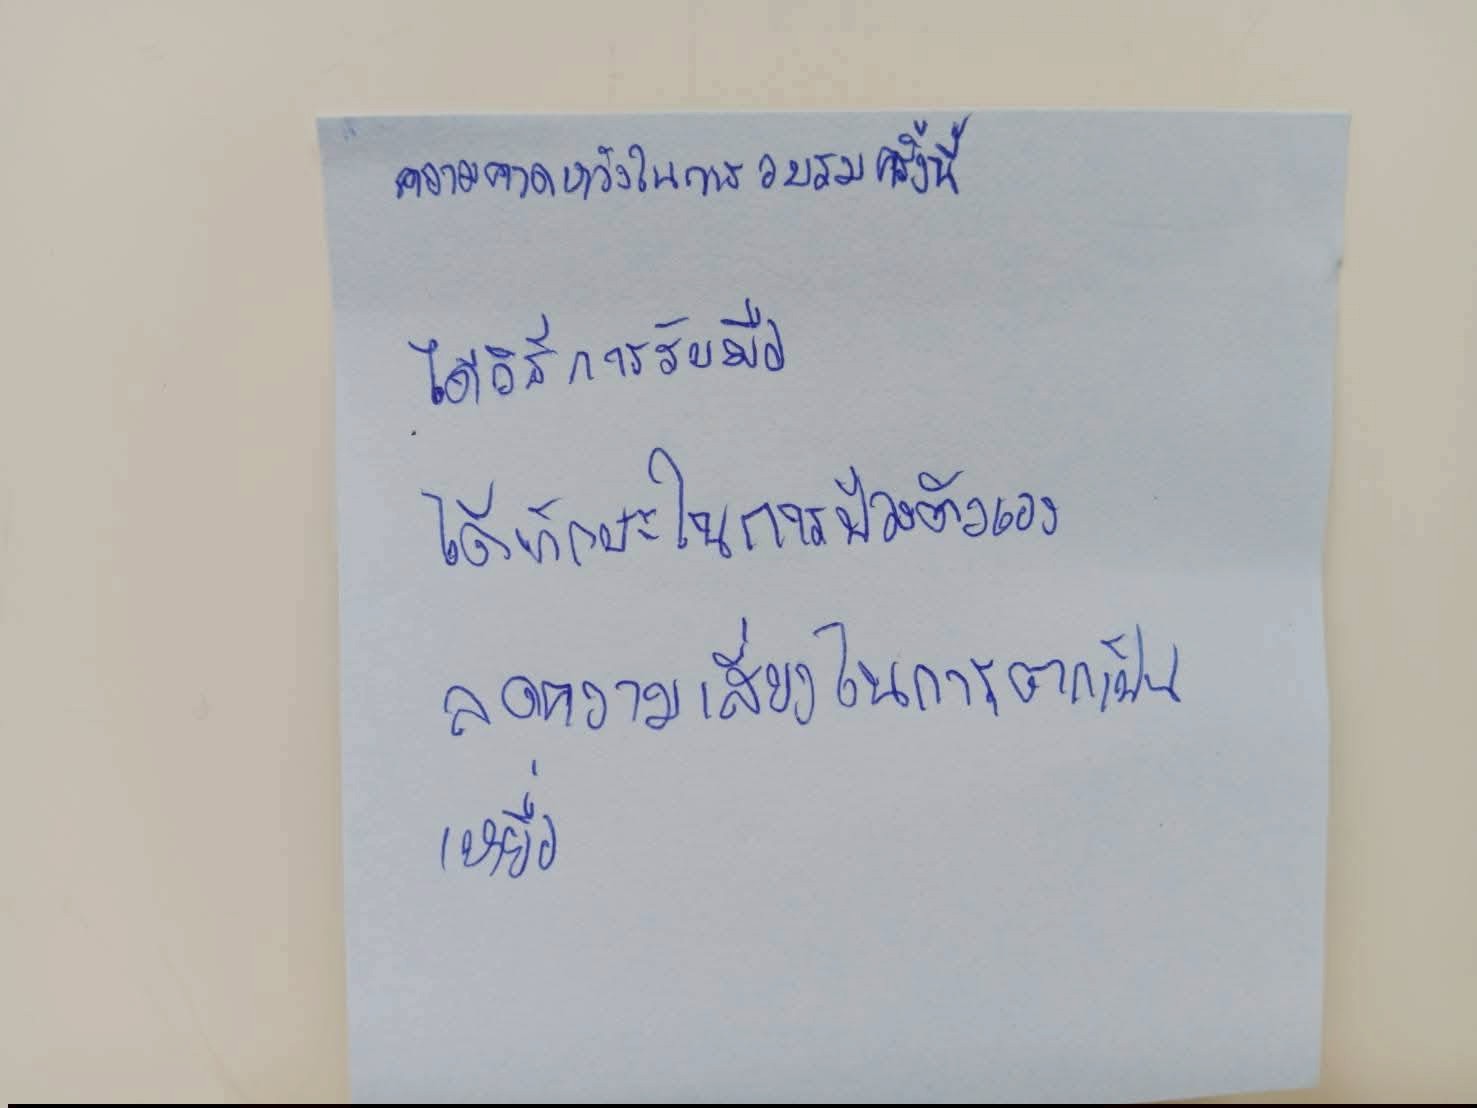 ความคาดหวังในการอบรมครั้งนี้
ได้วิธีการรับมือ
ได้ทักษะในการป้องตัวเอง
ลดความเสี่ยงในการตกเป็น
เหยื่อ